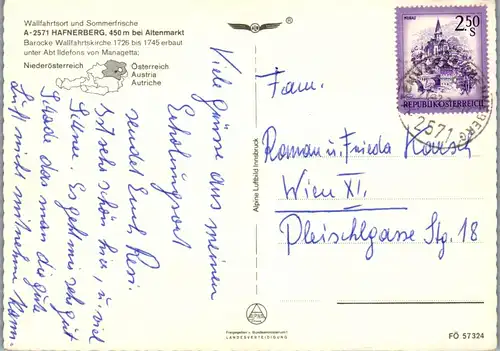 Wallfahrtsort und Sommerfrische
A-2571 HAFNERBERG, 450 m bei Altenmarkt
Barocke Wallfahrtskirche 1726 bis 1745 erbaut
unter Abt Ildefons von Managetta;
Niederösterreich
Österreich
Austria
Autriche
Viele Grüsse aus meinem
Erholungsort
sendet Euch Resi.
Ist sehr schön hier, u. viel
Schnee. Es geht mir sehr gut
Schade das man die gute
Luft nicht mitnehmen kann
Alpine Luftbild Innsbruck
Freigegeben v. Bundesministerium f.
LANDESVERTEIDIGUNG
MURAU
2.50
S
REPUBLIK ÖSTERREICH
2571
Fam.
Roman u. Frieda
Wien XI.
Pleischlgasse Stg. 18
FÖ 57324